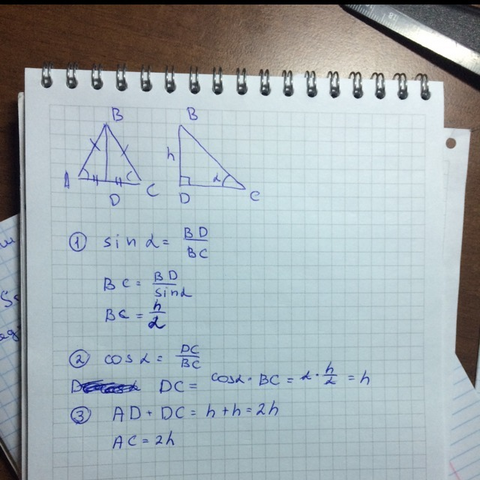 B
A
D
C
B
h
α
D
C
① sin α = BD/BC
BC = BD/sinα
BC = h/α
② cos α = DC/BC
DC = cosα · BC = α · h/α = h
③ AD + DC = h + h = 2h
AC = 2h